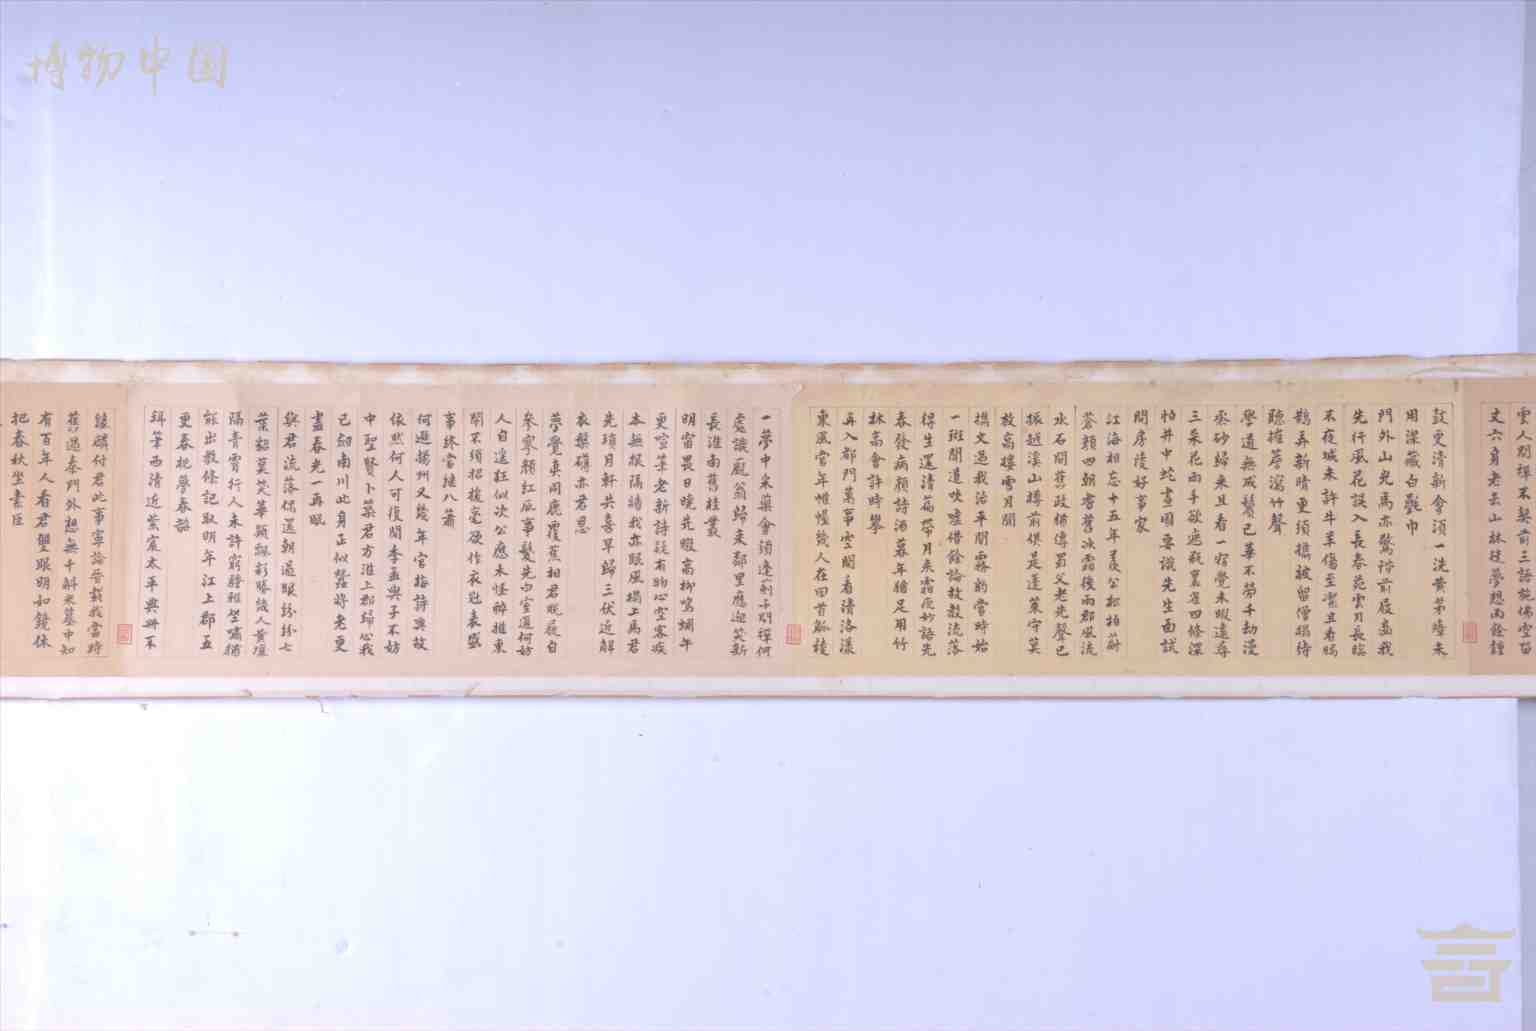 博物中国
雲人別禪不契前三語施佛空留
丈六身老去山林徒夢想雨餘鐘
鼓更清新會須一洗黃茅瘴未
用深藏白氎巾
門外山光馬亦驚階前屐齒我
先行風花誤入長春苑雲月長臨
不夜城未許牛羊傷至潔且看鴉
鵲弄新晴更須攜被留僧榻待
聽摧簷瀉竹聲
學道無成鬢已華不勞千劫漫
烝砂歸來且看一宿覺未暇遠尋
三朵花兩手欲遮瓶裏雀四條深
怕井中蛇畫圖要識先生面試
問房陵好事家
江海相忘十五年羨公松柏蔚
蒼顏四朝耆舊冰霜後兩郡風流
水石間舊政猶傳蜀父老先聲已
振越溪山樽前俱是蓬萊守莫
放高樓雪月閒
撫文過我治平間霧豹當時始
一斑聞道吹噓借餘論故教流落
得生還清篇帶月來霜夜妙語先
春發病顏詩酒暮年猶足用竹
林高會許時攀
再入都門萬事空閒看清洛漾
東風當年帷幄幾人在回首觚稜
一夢中采藥會須逢薊子問禪何
處識龐翁歸來鄰里應迎笑新
長淮南舊桂叢
明當畏日曉先暾高柳鳴蜩午
更喧筆老新詩疑有物心空客疾
本無根隔牆我亦眠風榻上馬君
先瑣月軒共喜早歸三伏近解
衣槃礴亦君恩
夢覺真同鹿覆蕉相君脫屣自
參寥顏紅底事髮先白室邇何妨
人自遙狂似次公應未怪醉推東
閣不須招援毫欲作衣冠表盛
事終當繼八蕭
何遜揚州又幾年官梅詩興故
依然何人可復間季孟與子不妨
中聖賢卜築君方淮上郡歸心我
已劒南川此身正似蠶將老更
盡春光一再眠
與君流落偶還朝過眼紛紛七
葉貂莫笑華顛飄彩勝幾人黃壤
隔青霄行人未許窺騷雅空嘯猶
能出教條記取明年江上郡五
更春枕夢春韶
珥筆西清近紫宸太平典冊不
緇磷付君此事寧論晉載我當時
舊過秦門外想無千斛米墓中知
有百年人看君雙眼明如鏡休
把春秋坐素臣